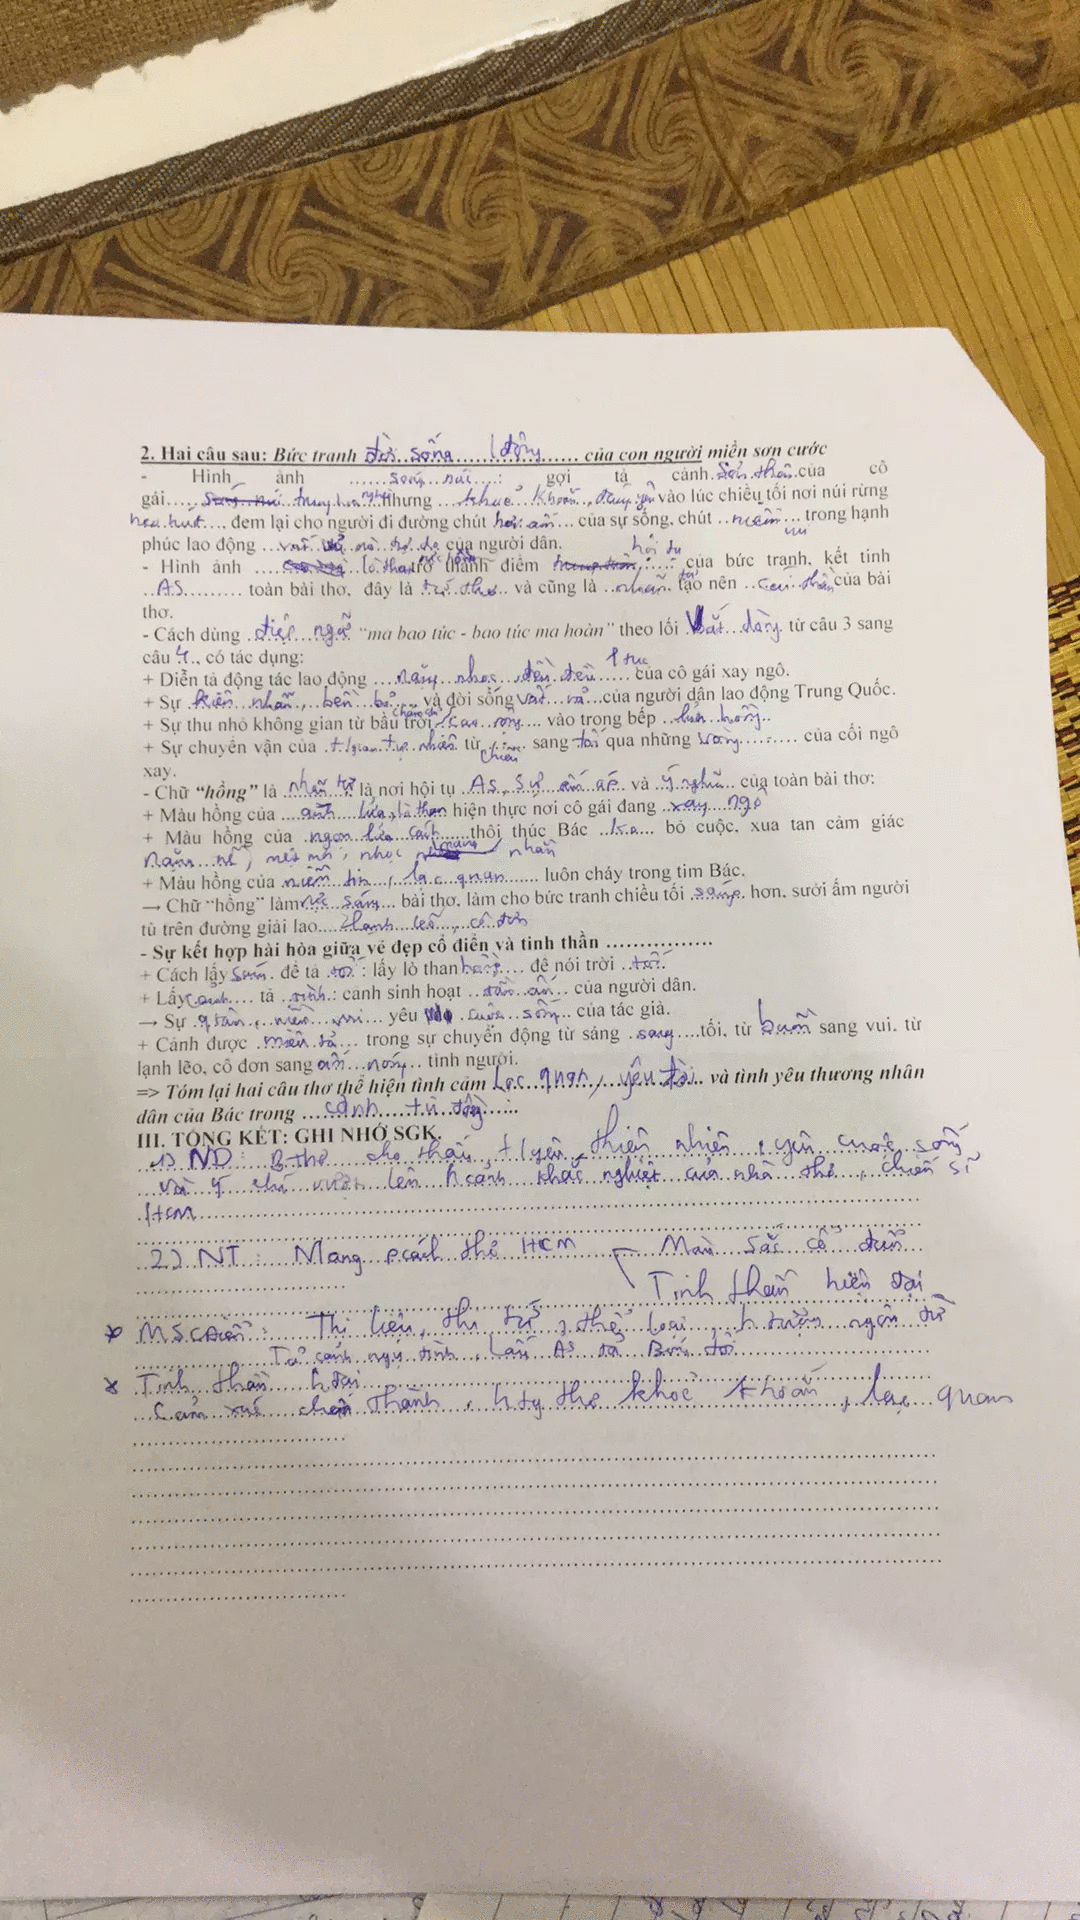 2. Hai câu sau: Bức tranh đời sống l động ...... của con người miền sơn cước
- Hình ảnh ...... ...... : gợi tả cảnh ...... của cô
gái ...... nhưng ...khoẻ khoắn, ...... vào lúc chiều tối nơi núi rừng
...... đem lại cho người đi đường chút hơi ấm ... của sự sống, chút ..niềm vui... trong hạnh
phúc lao động ..vất vả mà tự do của người dân.
- Hình ảnh ...... lò than rực hồng trở thành điểm hội tụ ...... của bức tranh, kết tinh
..AS......... toàn bài thơ, đây là tứ thơ... và cũng là ..nhãn tự tạo nên ..cái thần của bài
thơ.
- Cách dùng .điệp ngữ "ma bao túc - bao túc ma hoàn" theo lối vắt dòng. từ câu 3 sang
câu 4.., có tác dụng:
+ Diễn tả động tác lao động ...nặng nhọc, đều đều ...... của cô gái xay ngô.
+ Sự kiên nhẫn, bền bỉ... và đời sống vất vả..của người dân lao động Trung Quốc.
+ Sự thu nhỏ không gian từ bầu trời ..cao rộng.... vào trong bếp ..lửa hồng..
+ Sự chuyển vận của .t/gian tự nhiên từ chiều sang tối qua những vòng......... của cối ngô
xay.
- Chữ "hồng" là nhãn tự là nơi hội tụ .AS, sự ấm áp và ý nghĩa.. của toàn bài thơ:
+ Màu hồng của ...ánh lửa, lò than hiện thực nơi cô gái đang xay ngô
+ Màu hồng của .ngọn lửa cách mạng thôi thúc Bác ...... bỏ cuộc, xua tan cảm giác
nặng nề, mệt mỏi, nhọc nhằn
+ Màu hồng của niềm tin, lạc quan....... luôn cháy trong tim Bác.
→ Chữ "hồng" làm rực sáng... bài thơ, làm cho bức tranh chiều tối .sáng. hơn, sưởi ấm người
tù trên đường giải lao....lạnh lẽo, cô đơn
- Sự kết hợp hài hòa giữa vẻ đẹp cổ điển và tinh thần ..................
+ Cách lấy sáng. để tả .tối : lấy lò than hồng.... để nói trời ..tối.
+ Lấy cảnh.... tả ..tình.: cảnh sinh hoạt ..đầm ấm... của người dân.
→ Sự ......, niềm vui... yêu cuộc sống... của tác giả.
+ Cảnh được .miêu tả... trong sự chuyển động từ sáng .sang....tối, từ buồn sang vui, từ
lạnh lẽo, cô đơn sang ấm nóng... tình người.
=> Tóm lại hai câu thơ thể hiện tình cảm lạc quan, yêu đời.. và tình yêu thương nhân
dân của Bác trong ...cảnh tù đày.....
III. TỔNG KẾT: GHI NHỚ SGK.
1) ND: B thơ cho thấy, t/yêu thiên nhiên, yêu cuộc sống
và ý chí vượt lên h cảnh khắc nghiệt của nhà thơ, chiến sĩ
HCM
2) NT: Mang p cách thơ HCM Màu sắc cổ điển
Tinh thần hiện đại
* M.S.C Điển: Thi liệu, thi tứ, thể loại, h tượng ngôn từ
Tả cảnh ngụ tình, lấy AS tả Bóng tối
* Tinh thần h đại
Cảm xúc chân thành, h tg thơ khoẻ khoắn, lạc quan